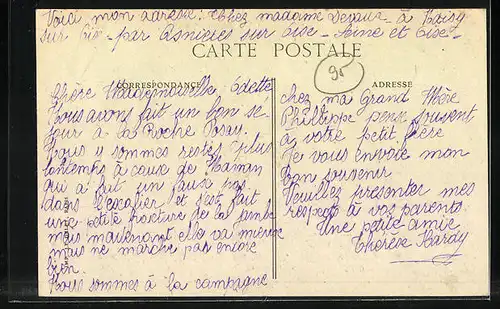 Voici mon adresse: Chez madame Devaux - à Noisy
sur Oise - par Asnières sur Oise - Seine et Oise -
CARTE POSTALE
95
CORRESPONDANCE
ADRESSE
Chère Mademoiselle Odette
Nous avons fait un bon sé-
jour à la Roche Posay.
Nous y sommes restés plus
lontemps à cause de Maman
qui a fait un faux pas
dans l'escalier et s'est fait
une petite fracture de la jambe
mais maintenant elle va mieux
mais ne marche pas encore
bien.
Nous sommes à la campagne
chez ma Grand Mère
Philippe pense souvent
à votre petit frère
Je vous envoie mon
bon souvenir
Veuillez présenter mes
respects à vos parents
Une petite amie
Thérèse Hardy